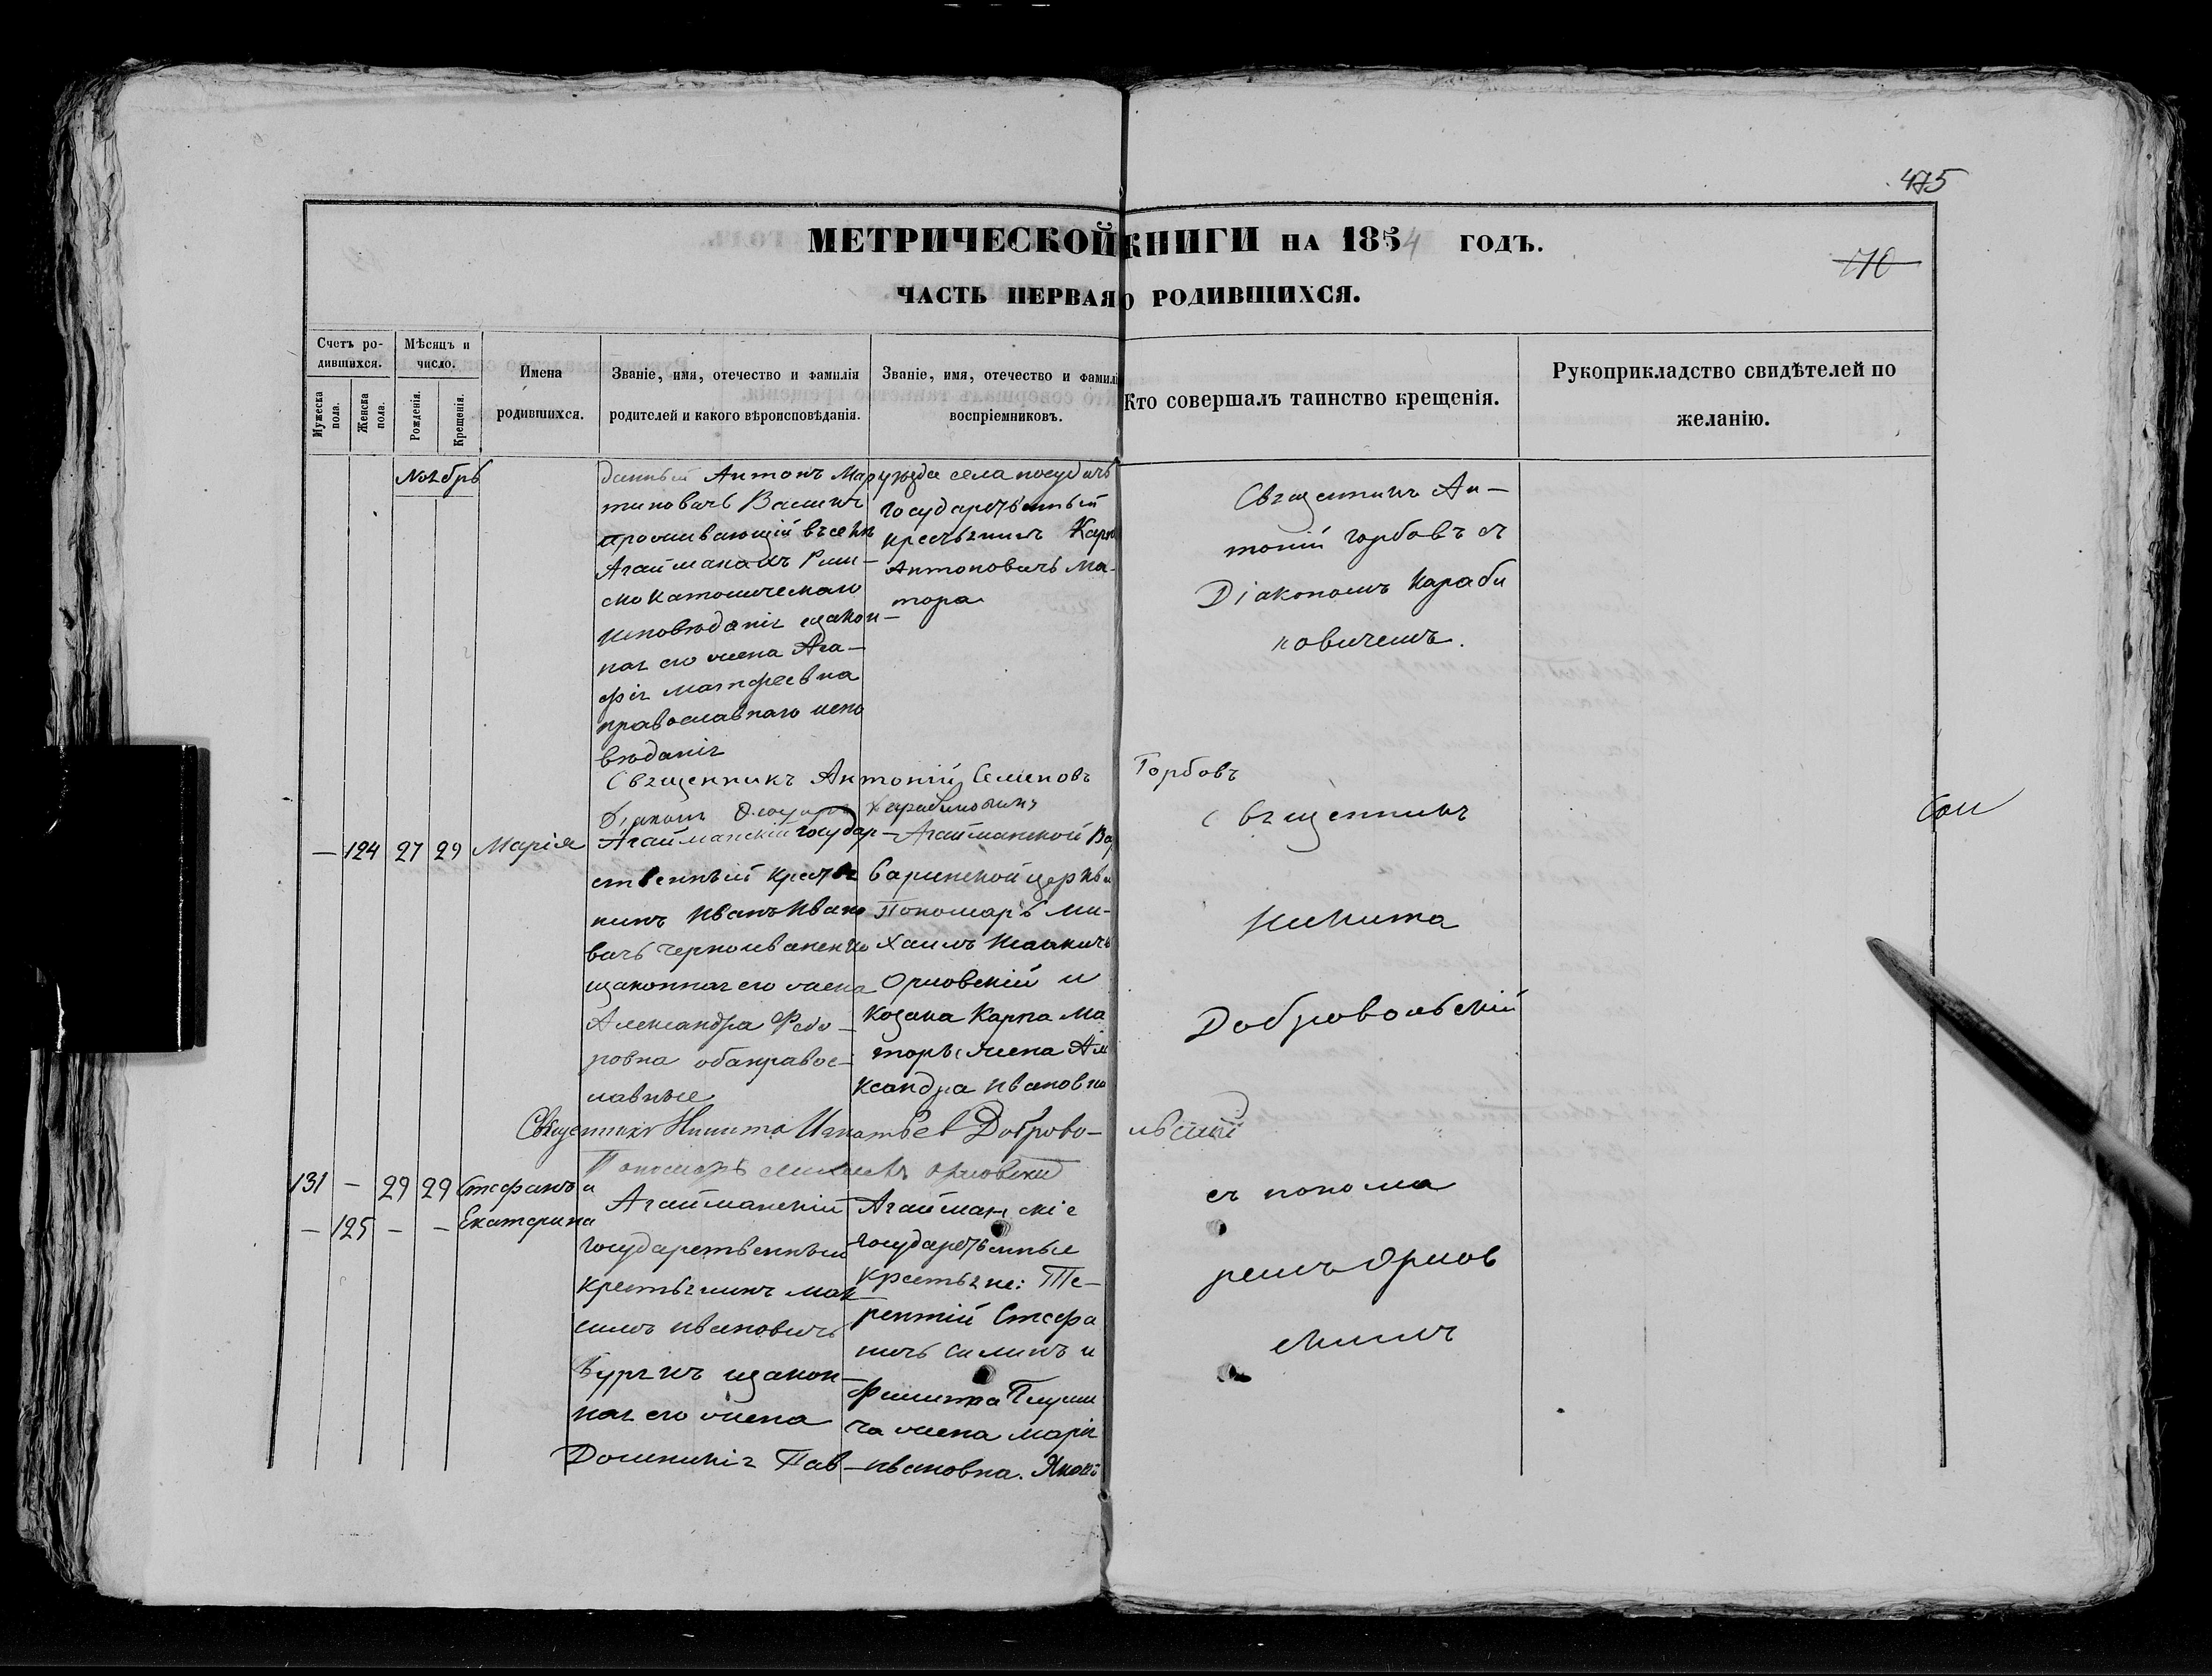 475
МЕТРИЧЕСКОЙ КНИГИ НА 1854 ГОДЪ.
ЧАСТЬ ПЕРВАЯ О РОДИВШИХСЯ.
Счетъ ро-
дившихся.
Мужеска пола.
Женска пола.
Мѣсяцъ и
число.
Рожденія.
Крещенія.
Имена
родившихся.
Званіе, имя, отечество и фамилія
родителей и какого вѣроисповѣданія.
Званіе, имя, отечество и фамилі
воспріемниковъ.
Кто совершалъ таинство крещенія.
Рукоприкладство свидѣтелей по
желанію.
Ноябрь
данный Антонъ Мар
тиновичъ
проживающій въ селѣ
Агайманахъ Рим-
ско Католическаго
исповѣданія изакон-
ная его жена Ага-
фія Матфеевна
православнаго испо
вѣданія
уѣзда села
государственный
крестьянинъ Карпъ
Антоновичъ Ма-
тора
Священникъ Ан-
тоній Горбовъ съ
Діакономъ Караби
новичемъ.
Священникъ Антоній Семеновъ Горбовъ
— 124 27 29 Марія
Агайманскій государ-
ственный крестья
нинъ Иванъ Ивано
вичъ Черноиваненко
изаконная его жена
Александра Федо-
ровна обаправос-
лавные
Агайманской Ва
варинской церкви
Пономарь Ми-
хаилъ
Орловскій и
Козака Карпа Ма
торы жена Але
ксандра Ивановна
Священникъ
Никита
Добровольскій
Священникъ Никита Игнатьев Доброво- льскій
Пономарь Михаилъ Орловскій
131 — 29 29 Стефанъ и
— 125 — — Екатерина
Агайманскій
государственный
крестьянинъ Мак
симъ Ивановичъ
изакон-
ная его жена
Домникія Пав-
Агайманскіе
государственные
крестьяне: Те-
рентій Стефа
ничъ и
Филиппа
жена Марія
Ивановна.
съ понома
ремъ Орлов
скимъ